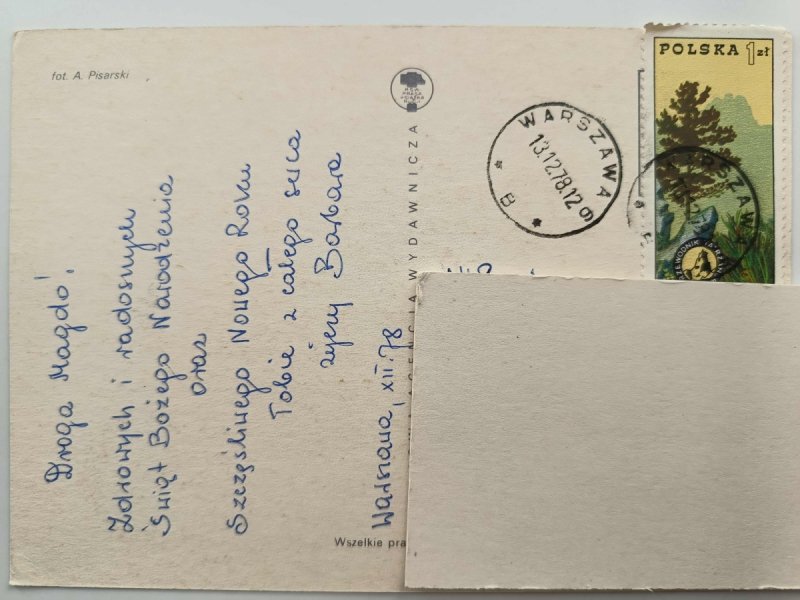 fot. A. Pisarski
Droga Magdo!
Zdrowych i radosnych
Świąt Bożego Narodzenia
oraz
Szczęśliwego Nowego Roku
Tobie z całego serca
życzy Barbara
Warszawa, XII.78
Wszelkie
WYDAWNICZA
WARSZAWA
13.12.78.12
B
POLSKA 1 zł